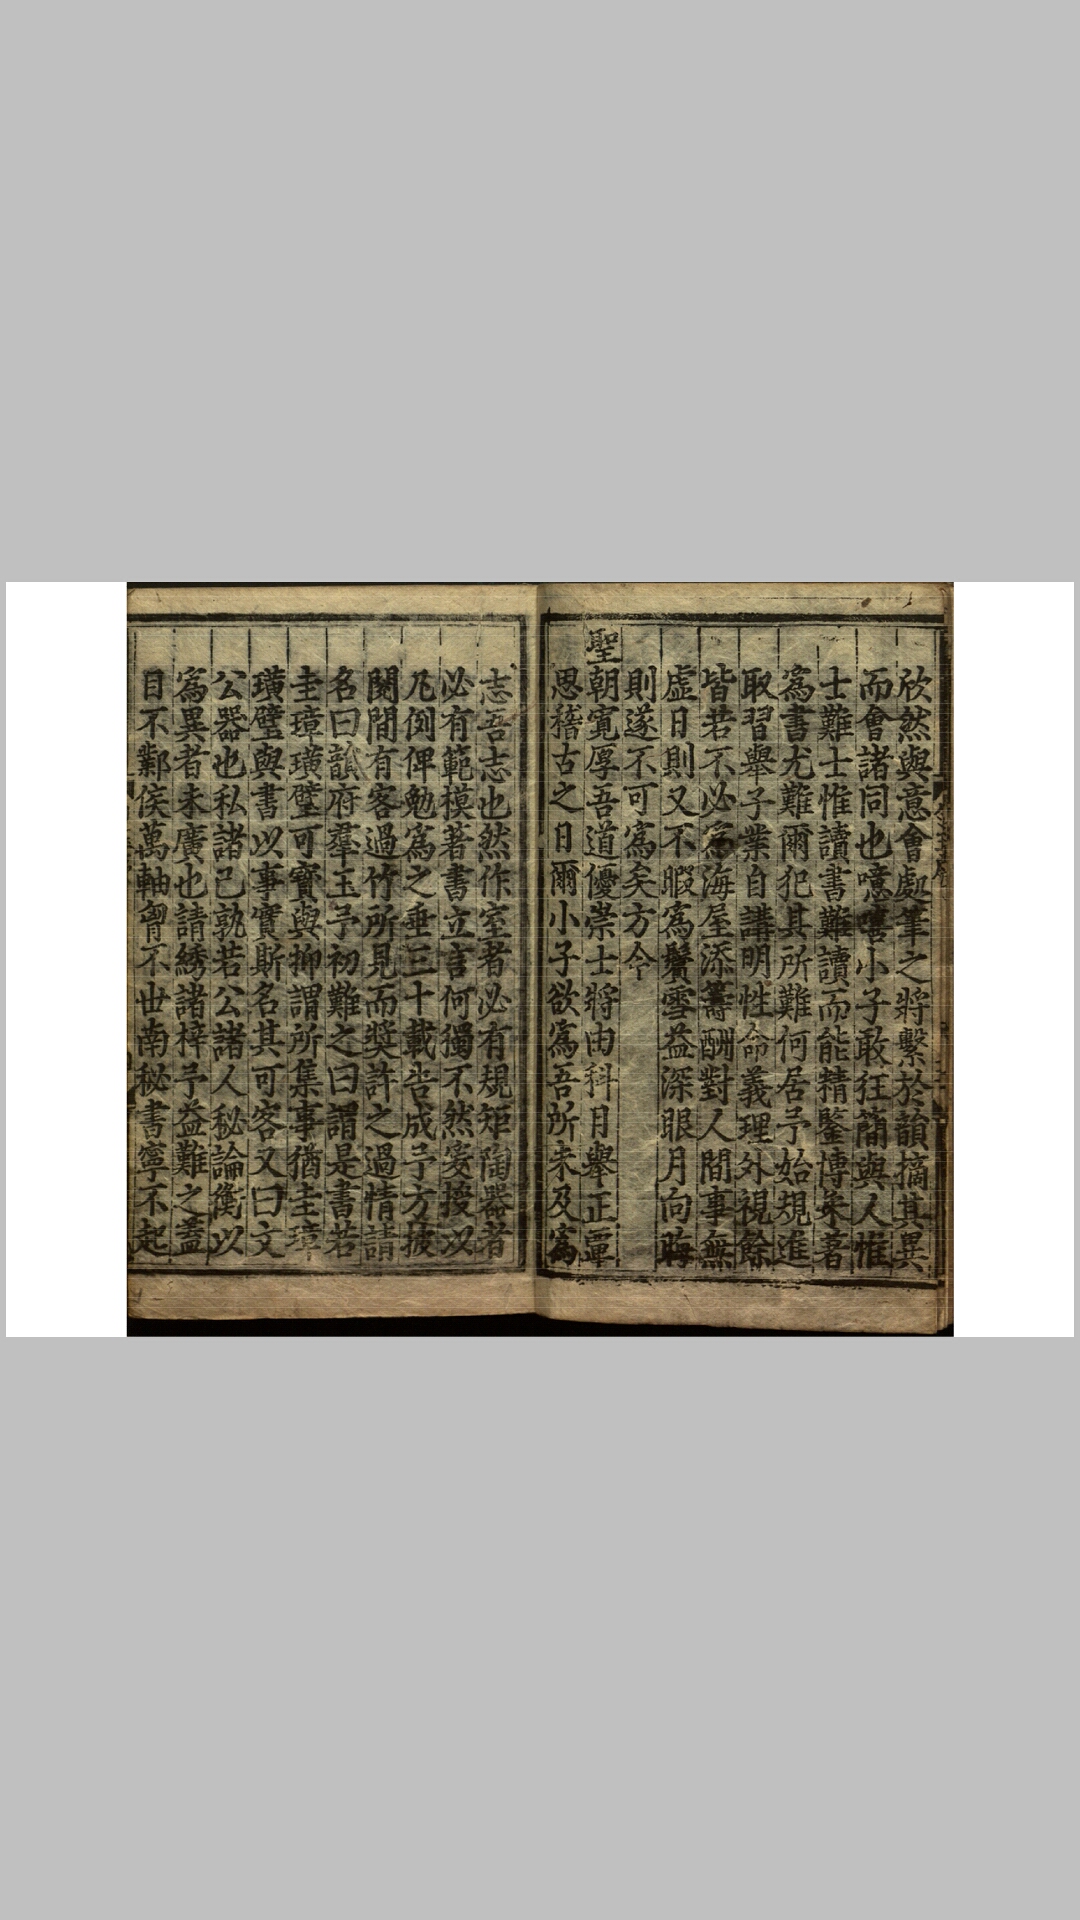 欣然與意會處筆之將繫於韻摘其異
而會諸同也噫嘻小子敢狂簡與人惟
士難士惟讀書難讀而能精鑒博采著
為書尤難爾犯其所難何居予始規進
取習舉子業自講明性命義理外視餘
皆若不必為海屋添籌酬對人間事無
虛日則又不暇為鬢雪益深眼月向晦
則遂不可為矣方今
聖朝寬厚吾道優崇士將由科月舉正單
思稽古之日爾小子欲為吾所未及為
志吾志也然作室者必有規矩陶器者
必有範模著書立言何獨不然爰授以
凡例俾勉為之垂三十載告成予方披
閱間有客過竹所見而獎許之過情請
名曰韻府羣玉予初難之曰謂是書若
圭璋璜璧可寶與抑謂所集事猶圭璋
璜璧與書以事實斯名其可客又曰文
公器也私諸己孰若公諸人秘論衡以
為異者未廣也請綉諸梓予益難之蓋
目不鄴侯萬軸胷不世南秘書寧不起